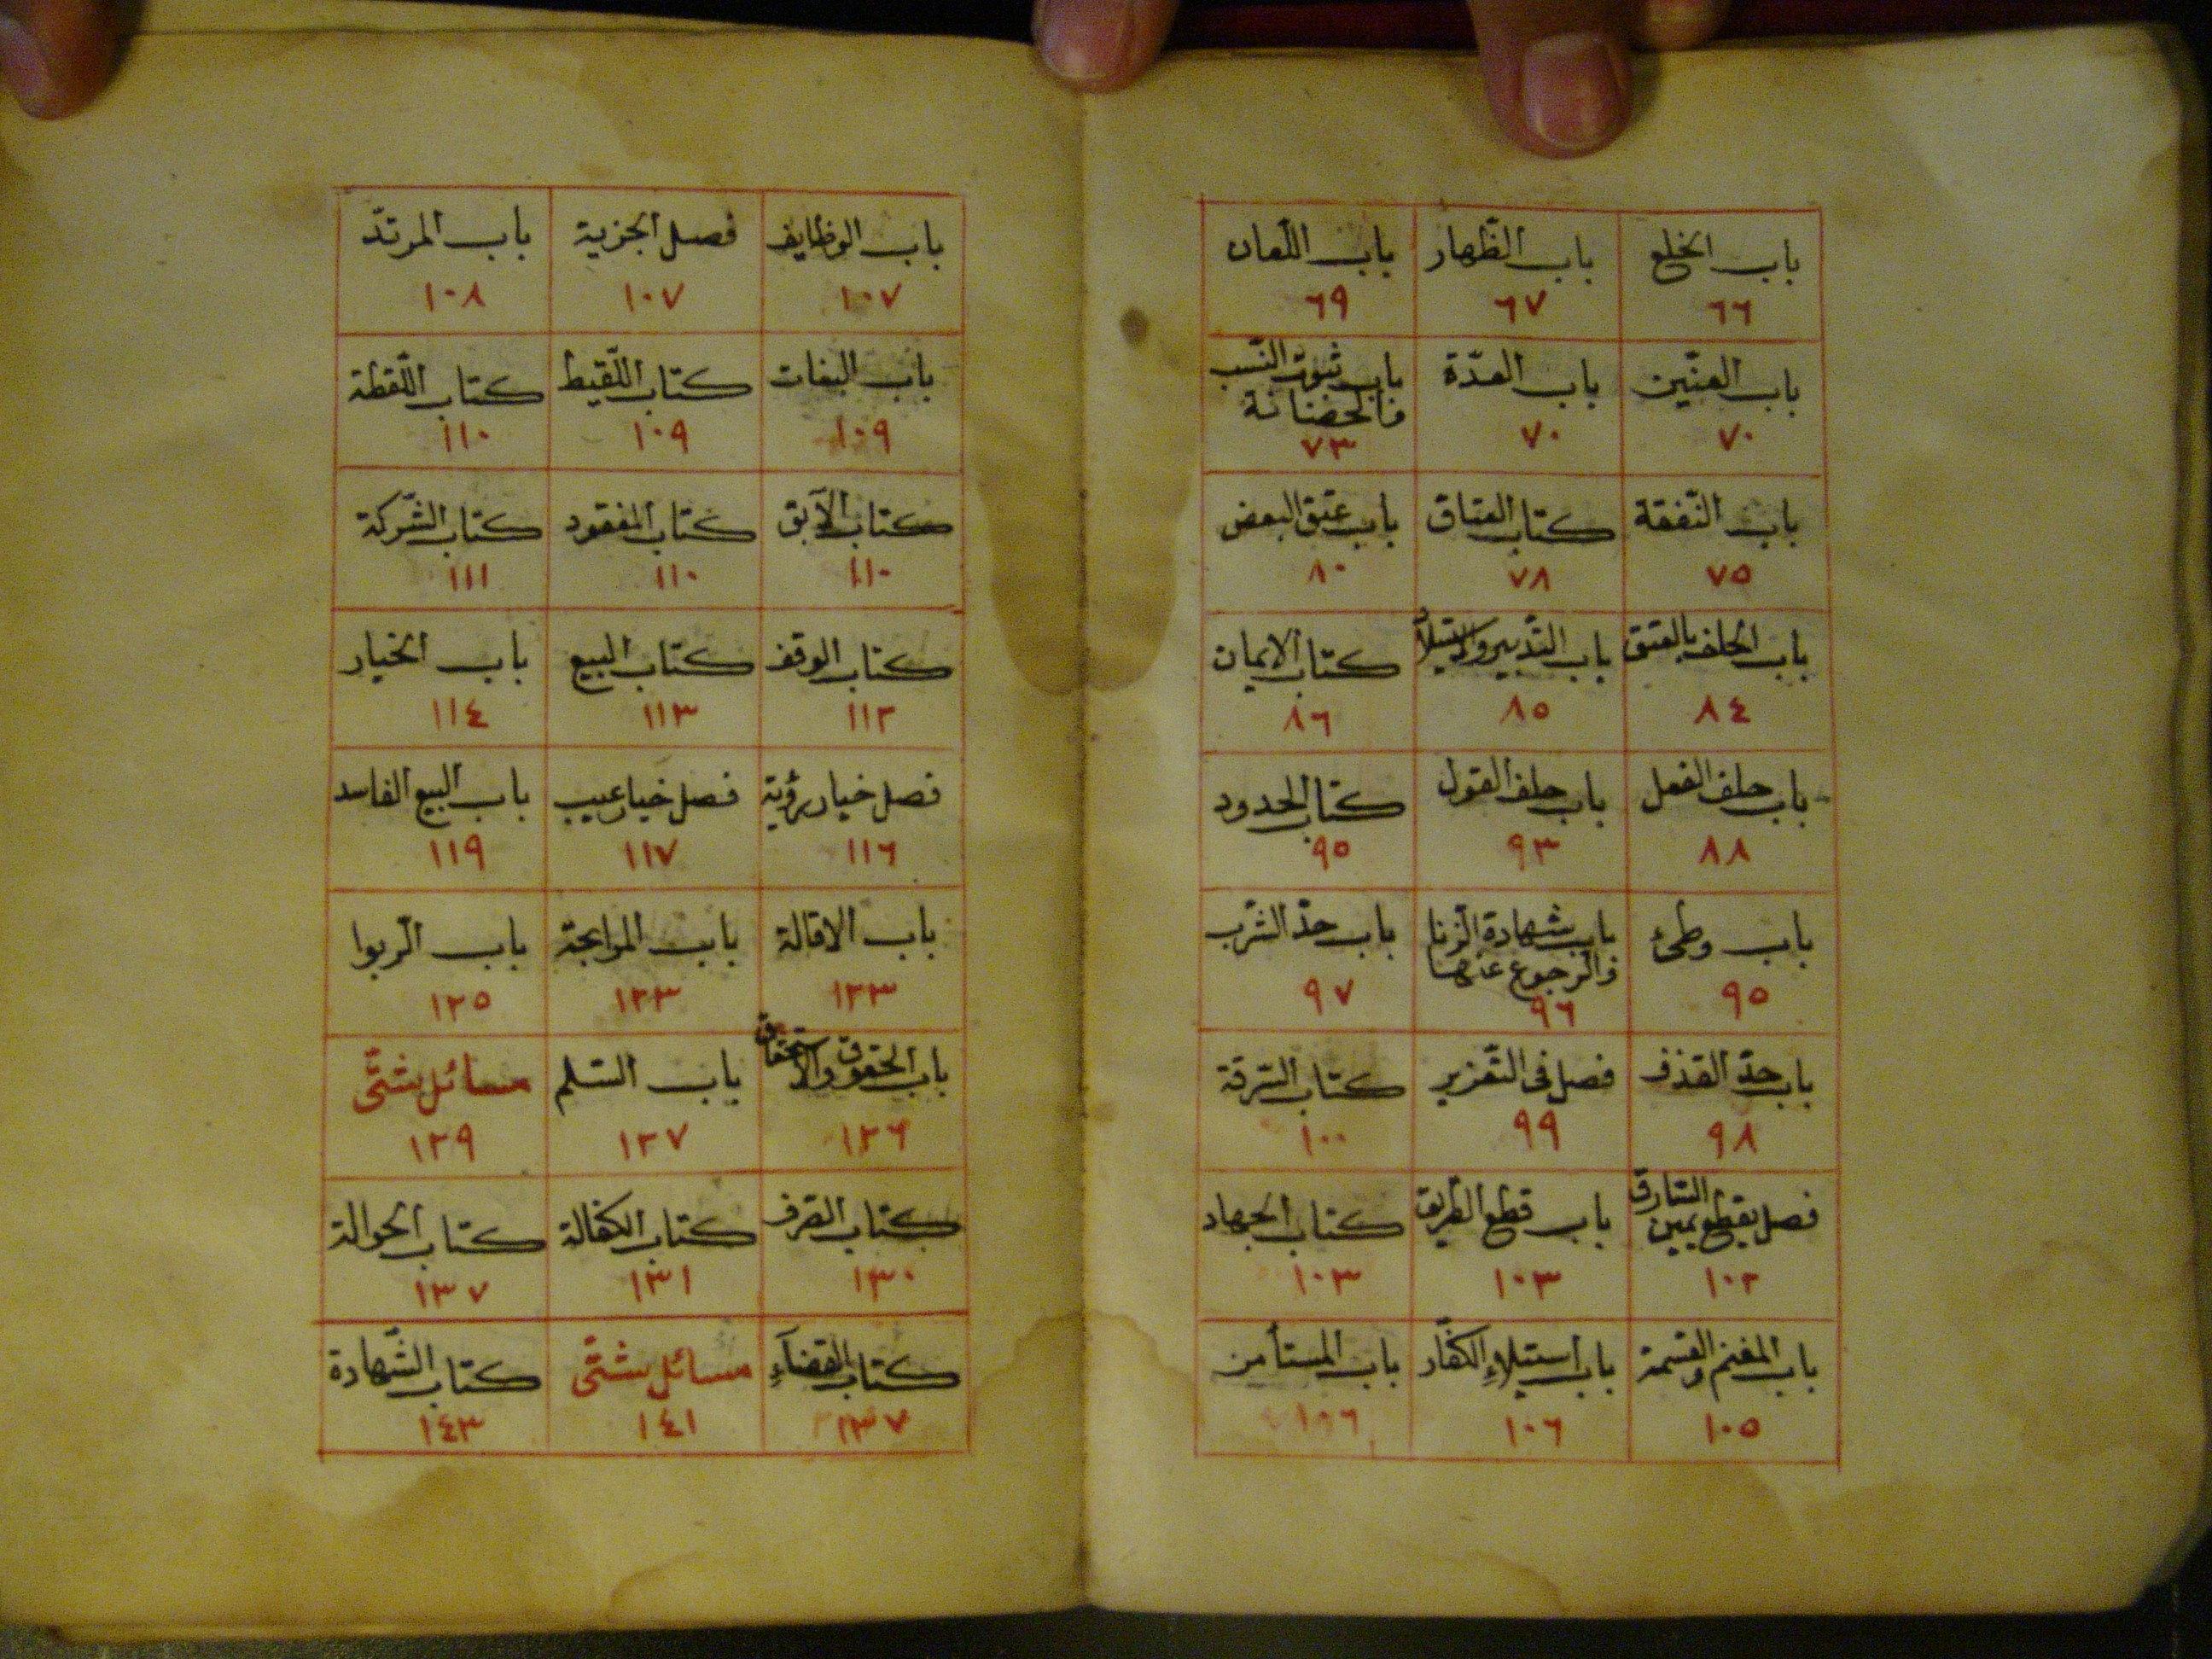 باب الخلع
٦٦
باب الظّهار
٦٧
باب اللّعان
٦٩
باب العنّين
٧٠
باب العدّة
٧٠
باب ثبوت النّسب
والحضانة
٧٣
باب النّفقة
٧٥
كتاب العتاق
٧٨
باب عتق البعض
٨٠
باب الحلف بالعتق
٨٤
باب التّدبير والاستيلاد
٨٥
كتاب الايمان
٨٦
باب حلف الفعل
٨٨
باب حلف القول
٩٣
كتاب الحدود
٩٥
باب وطئ
٩٥
باب شهادة الزّنا
والرجوع عنها
٩٦
باب حدّ الشّرب
٩٧
باب حدّ القذف
٩٨
فصل فى التّعزير
٩٩
كتاب السّرقة
١٠٠
فصل يقطع يمين السّارق
١٠٢
باب قطع الطّريق
١٠٣
كتاب الجهاد
١٠٣
باب المغنم والقسمة
١٠٥
باب استيلاءِ الكفّار
١٠٦
باب المستأمن
١٠٦
باب الوظايف
١٠٧
فصل الجزية
١٠٧
باب المرتدّ
١٠٨
باب البغات
١٠٩
كتاب اللّقيط
١٠٩
كتاب اللّقطة
١١٠
كتاب الآبق
١١٠
كتاب المفقود
١١٠
كتاب الشّركة
١١١
كتاب الوقف
١١٢
كتاب البيع
١١٣
باب الخيار
١١٤
فصل خيار رؤية
١١٦
فصل خيار عيب
١١٧
باب البيع الفاسد
١١٩
باب الاقالة
١٢٣
باب المرابحة
١٢٣
باب الرّبوا
١٢٥
باب الحقوق والاستحقاق
١٢٦
باب السّلم
١٢٧
مسائل شتّى
١٢٩
كتاب الصّرف
١٣٠
كتاب الكفالة
١٣١
كتاب الحوالة
١٣٧
كتاب القضآءِ
١٣٧
مسائل شتّى
١٤١
كتاب الشّهادة
١٤٣